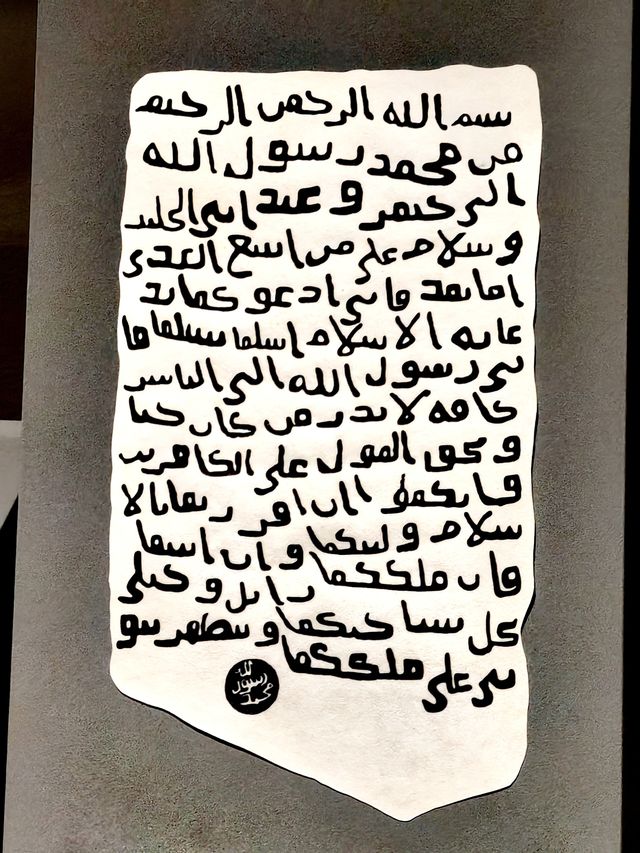 بسم الله الرحمن الرحيم
من محمد رسول الله
الى جيفر و عبد ابني الجلند
و سلام على من اتبع الهدى
اما بعد فاني ادعو كما بد
عايه الاسلام اسلما تسلما فا
ني رسول الله الى الناس
كافه لانذر من كان حيا
و يحق القول على الكافرين
فانكما ان اقررتما بالا
سلام وليتكما وان ابيتما
فان ملككما زايل و خيلي
تحل بساحتكما و تظهر نبو
تي على ملككما
الله
رسول
محمد